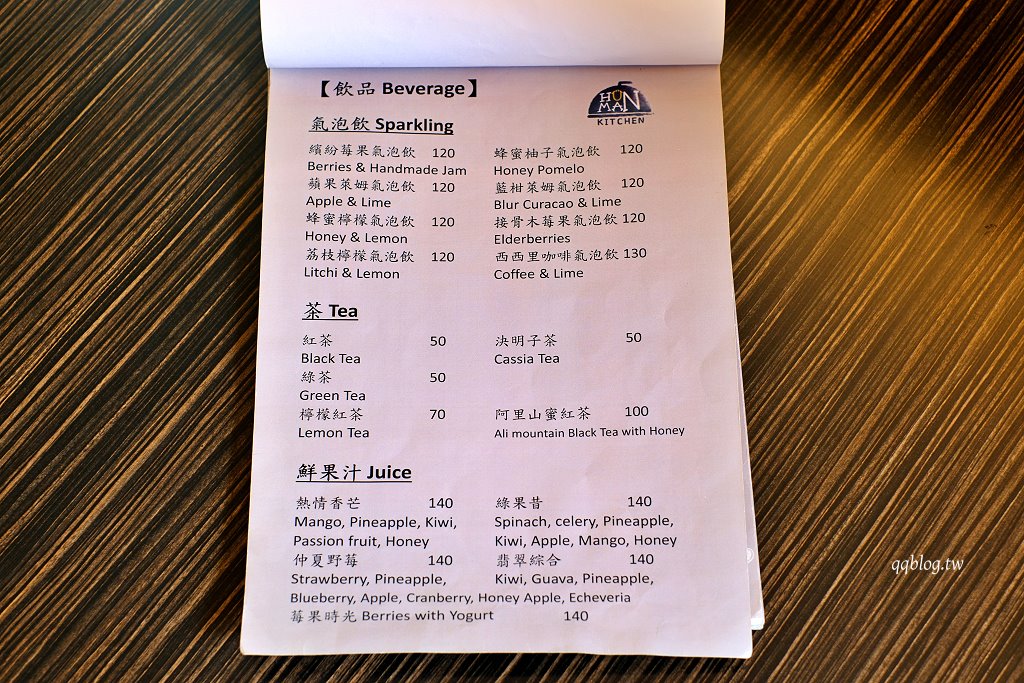 【飲品 Beverage】
HUN MAN
KITCHEN
氣泡飲 Sparkling
繽紛莓果氣泡飲 120
Berries & Handmade Jam
蘋果萊姆氣泡飲 120
Apple & Lime
蜂蜜檸檬氣泡飲 120
Honey & Lemon
荔枝檸檬氣泡飲 120
Litchi & Lemon
蜂蜜柚子氣泡飲 120
Honey Pomelo
藍柑萊姆氣泡飲 120
Blur Curacao & Lime
接骨木莓果氣泡飲 120
Elderberries
西西里咖啡氣泡飲 130
Coffee & Lime
茶 Tea
紅茶 50
Black Tea
綠茶 50
Green Tea
檸檬紅茶 70
Lemon Tea
決明子茶 50
Cassia Tea
阿里山蜜紅茶 100
Ali mountain Black Tea with Honey
鮮果汁 Juice
熱情香芒 140
Mango, Pineapple, Kiwi,
Passion fruit, Honey
綠果昔 140
Spinach, celery, Pineapple,
Kiwi, Apple, Mango, Honey
仲夏野莓 140
Strawberry, Pineapple,
翡翠綜合 140
Kiwi, Guava, Pineapple,
Blueberry, Apple, Cranberry, Honey Apple, Echeveria
莓果時光 Berries with Yogurt 140
qqblog.tw